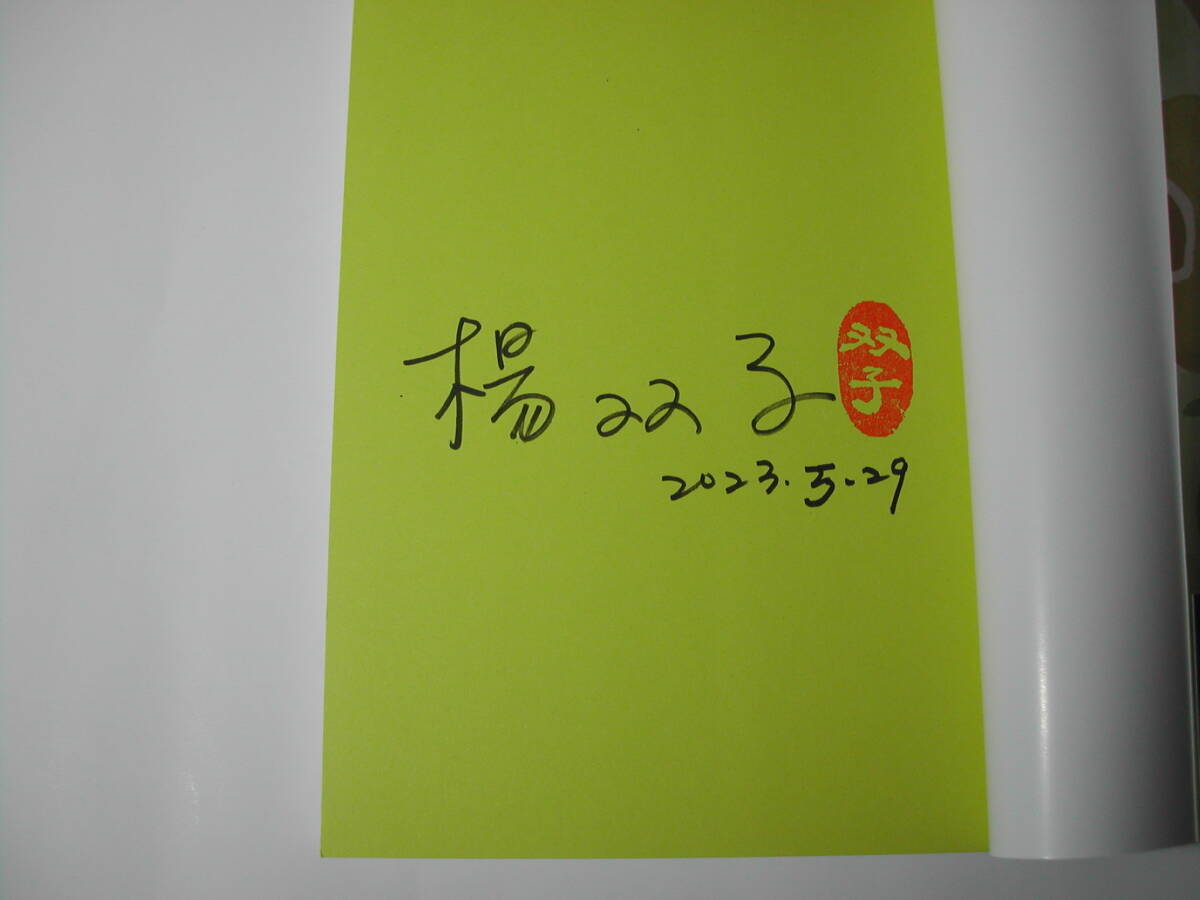 楊双子
双子
2023.5.29